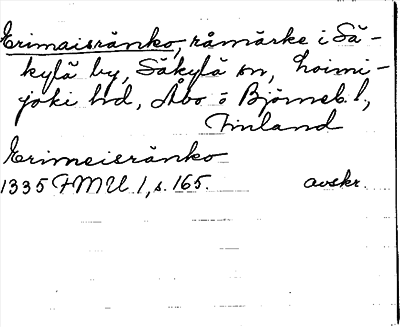 Erimaisränko, råmärke i Sä-
kylä by, Säkylä sn, Loimi-
joki hd, Åbo o Björneb. l,
Finland
Erimeisränko
1335 FMU 1, s. 165. avskr.